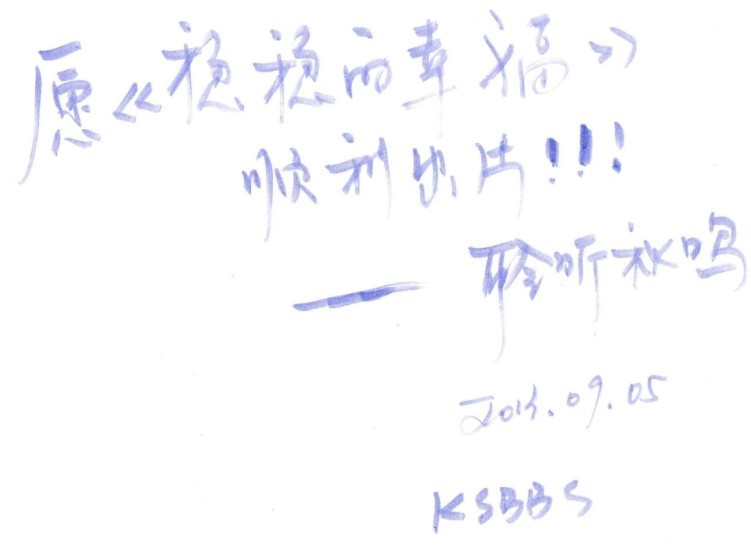 愿《稳稳的幸福》
顺利出片!!!
—— 聆听秋鸣
2014.09.05
KSBBS